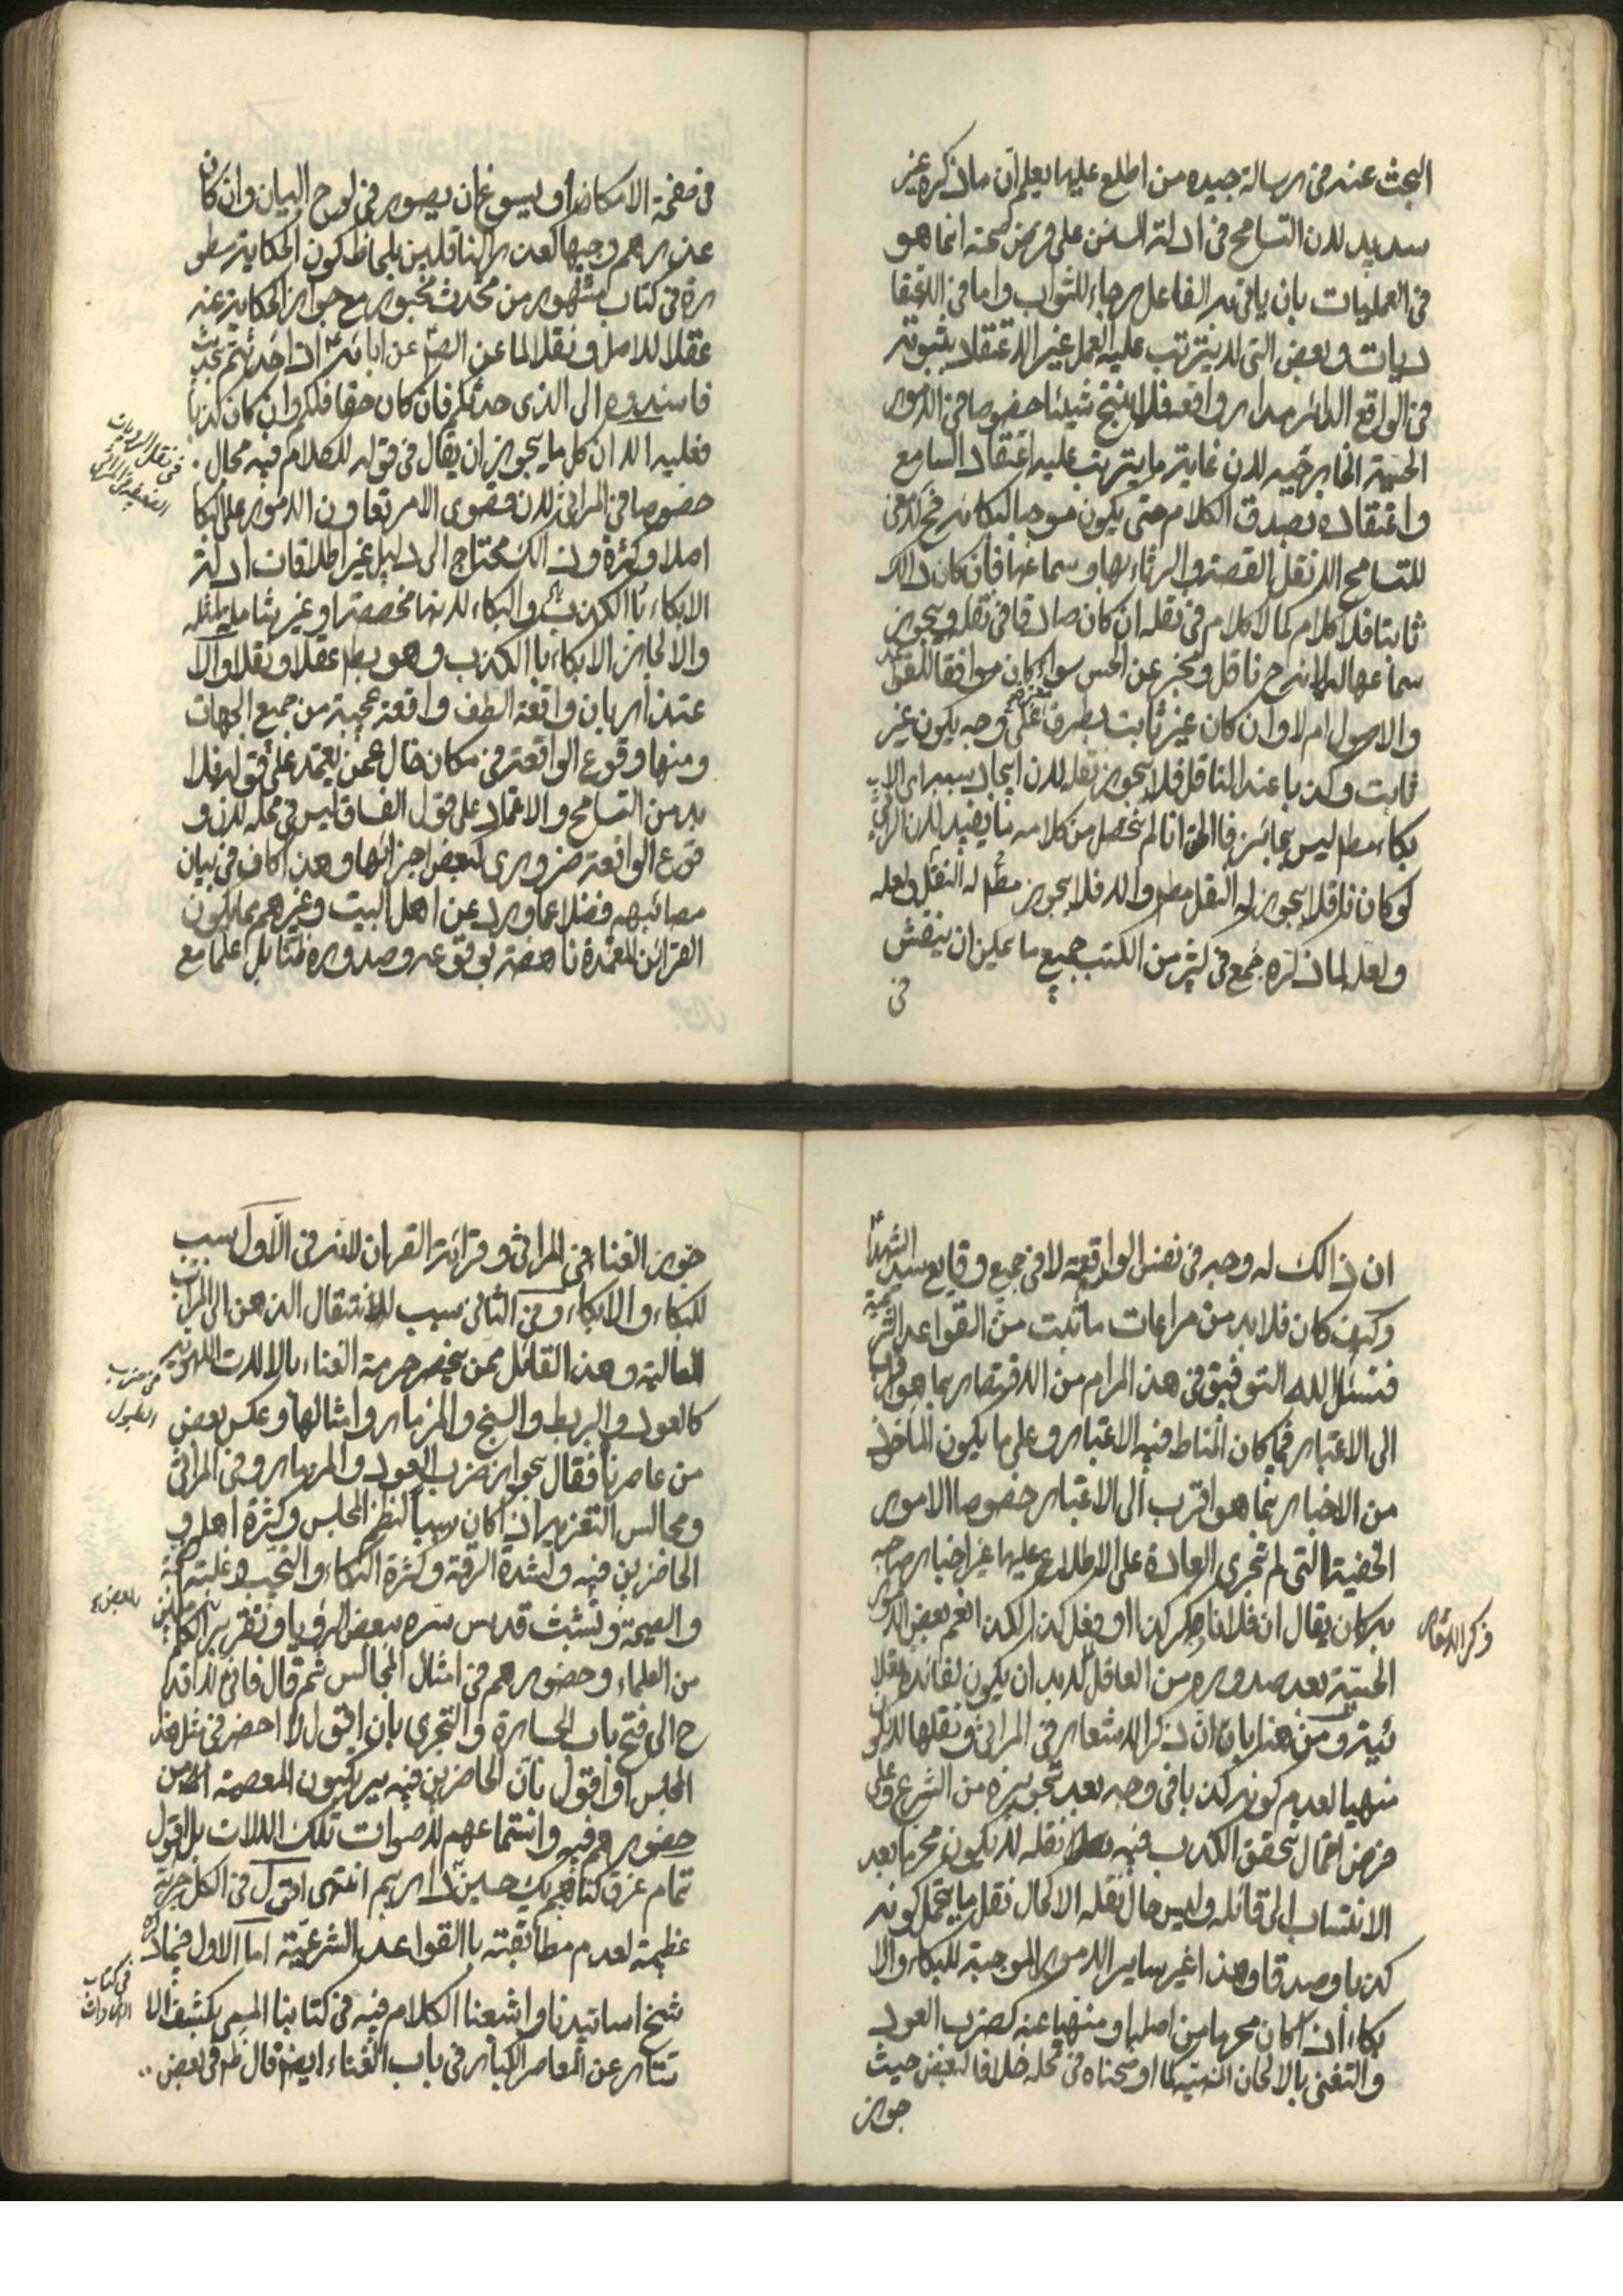 البحث عنه فى رسالة جيده من اطلع عليها يعلم ان ما ذكره غير
سديد لان التسامح فى ادلة السنن على فرض صحته انما هو
فى العمليات بان ياتى به الفاعل رجاء للثواب واما فى الاعتقا
ديات وبعض التى لا يترتب عليه العمل غير الاعتقاد بثبوته
فى الواقع الدائر مدار واقعه فلا ينتج شيئا خصوصا فى الامور
الحسية الخارجيه لان غاية ما يترتب عليه اعتقاد السامع
واعتقاده بصدق الكلام حتى يكون موجبا لبكائه فح لا معنى
للتسامح الا نقل القصة والرثاء بها وسماعها فان كان ذالك
ثابتا فلا كلام كما لا كلام فى نقله ان كان صادقا فى نقله ويجوز
سماعها لانه ح ناقل ومخبر عن الحس سواء كان موافقا للقواعد
والاصول ام لا وان كان غير ثابت بطرق على وجه يكون غير
ثابت وكذبا عند الناقل فلا يجوز نقله لان ايجاد سببه اى الا
بكاء مطم ليس بجائز فالحق انا لم نحصل من كلامه ما يفيد لان الراثى
لو كان ناقلا يجوز له النقل مطم والا فلا يجوز مطم له النقل ولعله
ولعله لما ذكره جمع فى كثير من الكتب جميع ما يمكن ان ينقش
فى
فى صفحة الامكان او يسوغ ان يصور فى لوح البيان وان كان
عذرهم وجيها كعذر الناقلين بلحاظ كون الحكاية مسطو
رة فى كتاب مشهور من محدث مخبور مع جواز الحكاية عنه
عقلا للاصل ونقلا لما عن الصّ عن ابائه ع اذا حدثتم بحديث
فاسندوه الى الذى حدثكم فان كان حقا فلكم وان كان كذبا
فعليه الا ان كل ما يجوز ان يقال فى قوله للكلام فيه مجال
خصوصا فى المراثى لان قصوى الامر تعاون الامور على البكا
اصلا وكثرة وذالك محتاج الى دليل غير اطلاقات ادلة
الابكاء بالكذب والبكاء لانها مخصصة او غير شاملة لمثله
والا لجاز الابكاء بالكذب وهو بط عقلا ونقلا والا
عتذار بان واقعة الطف واقعة عجيبة من جميع الجهات
ومنها وقوع الواقعة فى مكان خال عمن يعتمد على قوله فلا
بد من التسامح والاعتماد على قول الفساق ليس فى محله لان و
قوع الواقعة ضرورى كبعض اجزائها وهذا كاف فى بيان
مصائبهم فضلا عما ورد عن اهل البيت وغيرهم مما يكون
القرائن المعتمدة ناهضة بوقوعه وصدوره ظنا بل علما مع
فى نقل الروايات
الضعيفة فى المراثى
ان ذالك له وجه فى نفس الواقعة لا فى جميع وقايع سيد الشهداء
وكيف كان فلا بد من مراعات ما ثبت من القواعد الشرعية
فنسئل الله التوفيق فى هذا المرام من الاقتصار بما هو اقرب
الى الاعتبار فيما كان المناط فيه الاعتبار وعلى ما يكون الماخوذ
من الاخبار بما هو اقرب الى الاعتبار خصوصا الامور
الخفية التى لم تجر العادة على الاطلاع عليها غير اخبار صاحبه
به كان يقال ان فلانا فكر كذا او فعل كذا لكذا نعم بعض الامور
الحسّية بعد صدوره من العاقل لا بد ان يكون لفائدة عقلا
ئية ومن هنا بان ان ذكر الاشعار فى المراثى ونقلها لا يكون
منهيا لعدم كونه كذبا فى وجه بعد تجويزه من الشرع وعلى
فرض احتمال تحقق الكذب فيه نقله لا يكون محرما بعد
الانتساب الى قائله وليس حال نقله الا كحال نقل ما يحتمل كونه
كذبا وصدقا وهذا غير ساير الامور الموجبة للبكاء والا
بكاء اذا كان محرما من اصله او منهيا عنه كضرب العود
والتغنى بالالحان المنهية كما اوضحناه فى محله خلافا لبعض حيث
جوز
ذكر الاشعار
جوز الغناء فى المراثى وقرائة القران لانه فى الاول سبب
للبكاء والابكاء وفى الثانى سبب للانتقال الذهن الى المراتب
العالية وهذا القائل ممن يخص حرمة الغناء بالالات اللهوية
كالعود والبربط والسنج والمزمار وامثالها وعكس بعض
من عاصرنا فقال بجواز ضرب العود والمزمار وفى المراثى
ومجالس التعزير اذا كان سببا لنظم المجلس وكثرة اهله و
الحاضرين فيه ولشدة الرقة وكثرة البكاء والنحيب وغلبة الضجة
والصيحة وتشبث قدس سره ببعض الرؤيا وتقرير الكملين
من العلماء وحضورهم فى امثال المجالس ثم قال فانى لا اقد
ح الى فتح باب الجسارة والتجرى بان اقول لا احضر فى مثل هذا
المجلس او اقول بان الحاضرين فيه يرتكبون المعصية من
حضورهم فيه واستماعهم لاصوات تلك الالات بل اقول
تمام غرق كناهيم يك حسين داريم انتهى اقول فى الكل جرئة
عظيمة لعدم مطابقته بالقواعد الشرعيّة اما الاول فيما ذكره
شيخ اساتيدنا واشبعنا الكلام فيه فى كتابنا المسمى بكشف الا
ستتار عن المعاصر الكبار فى باب الغناء ايضا قال ظم فى بعض
فى ضرب
الطبول
بعض
فى كتاب